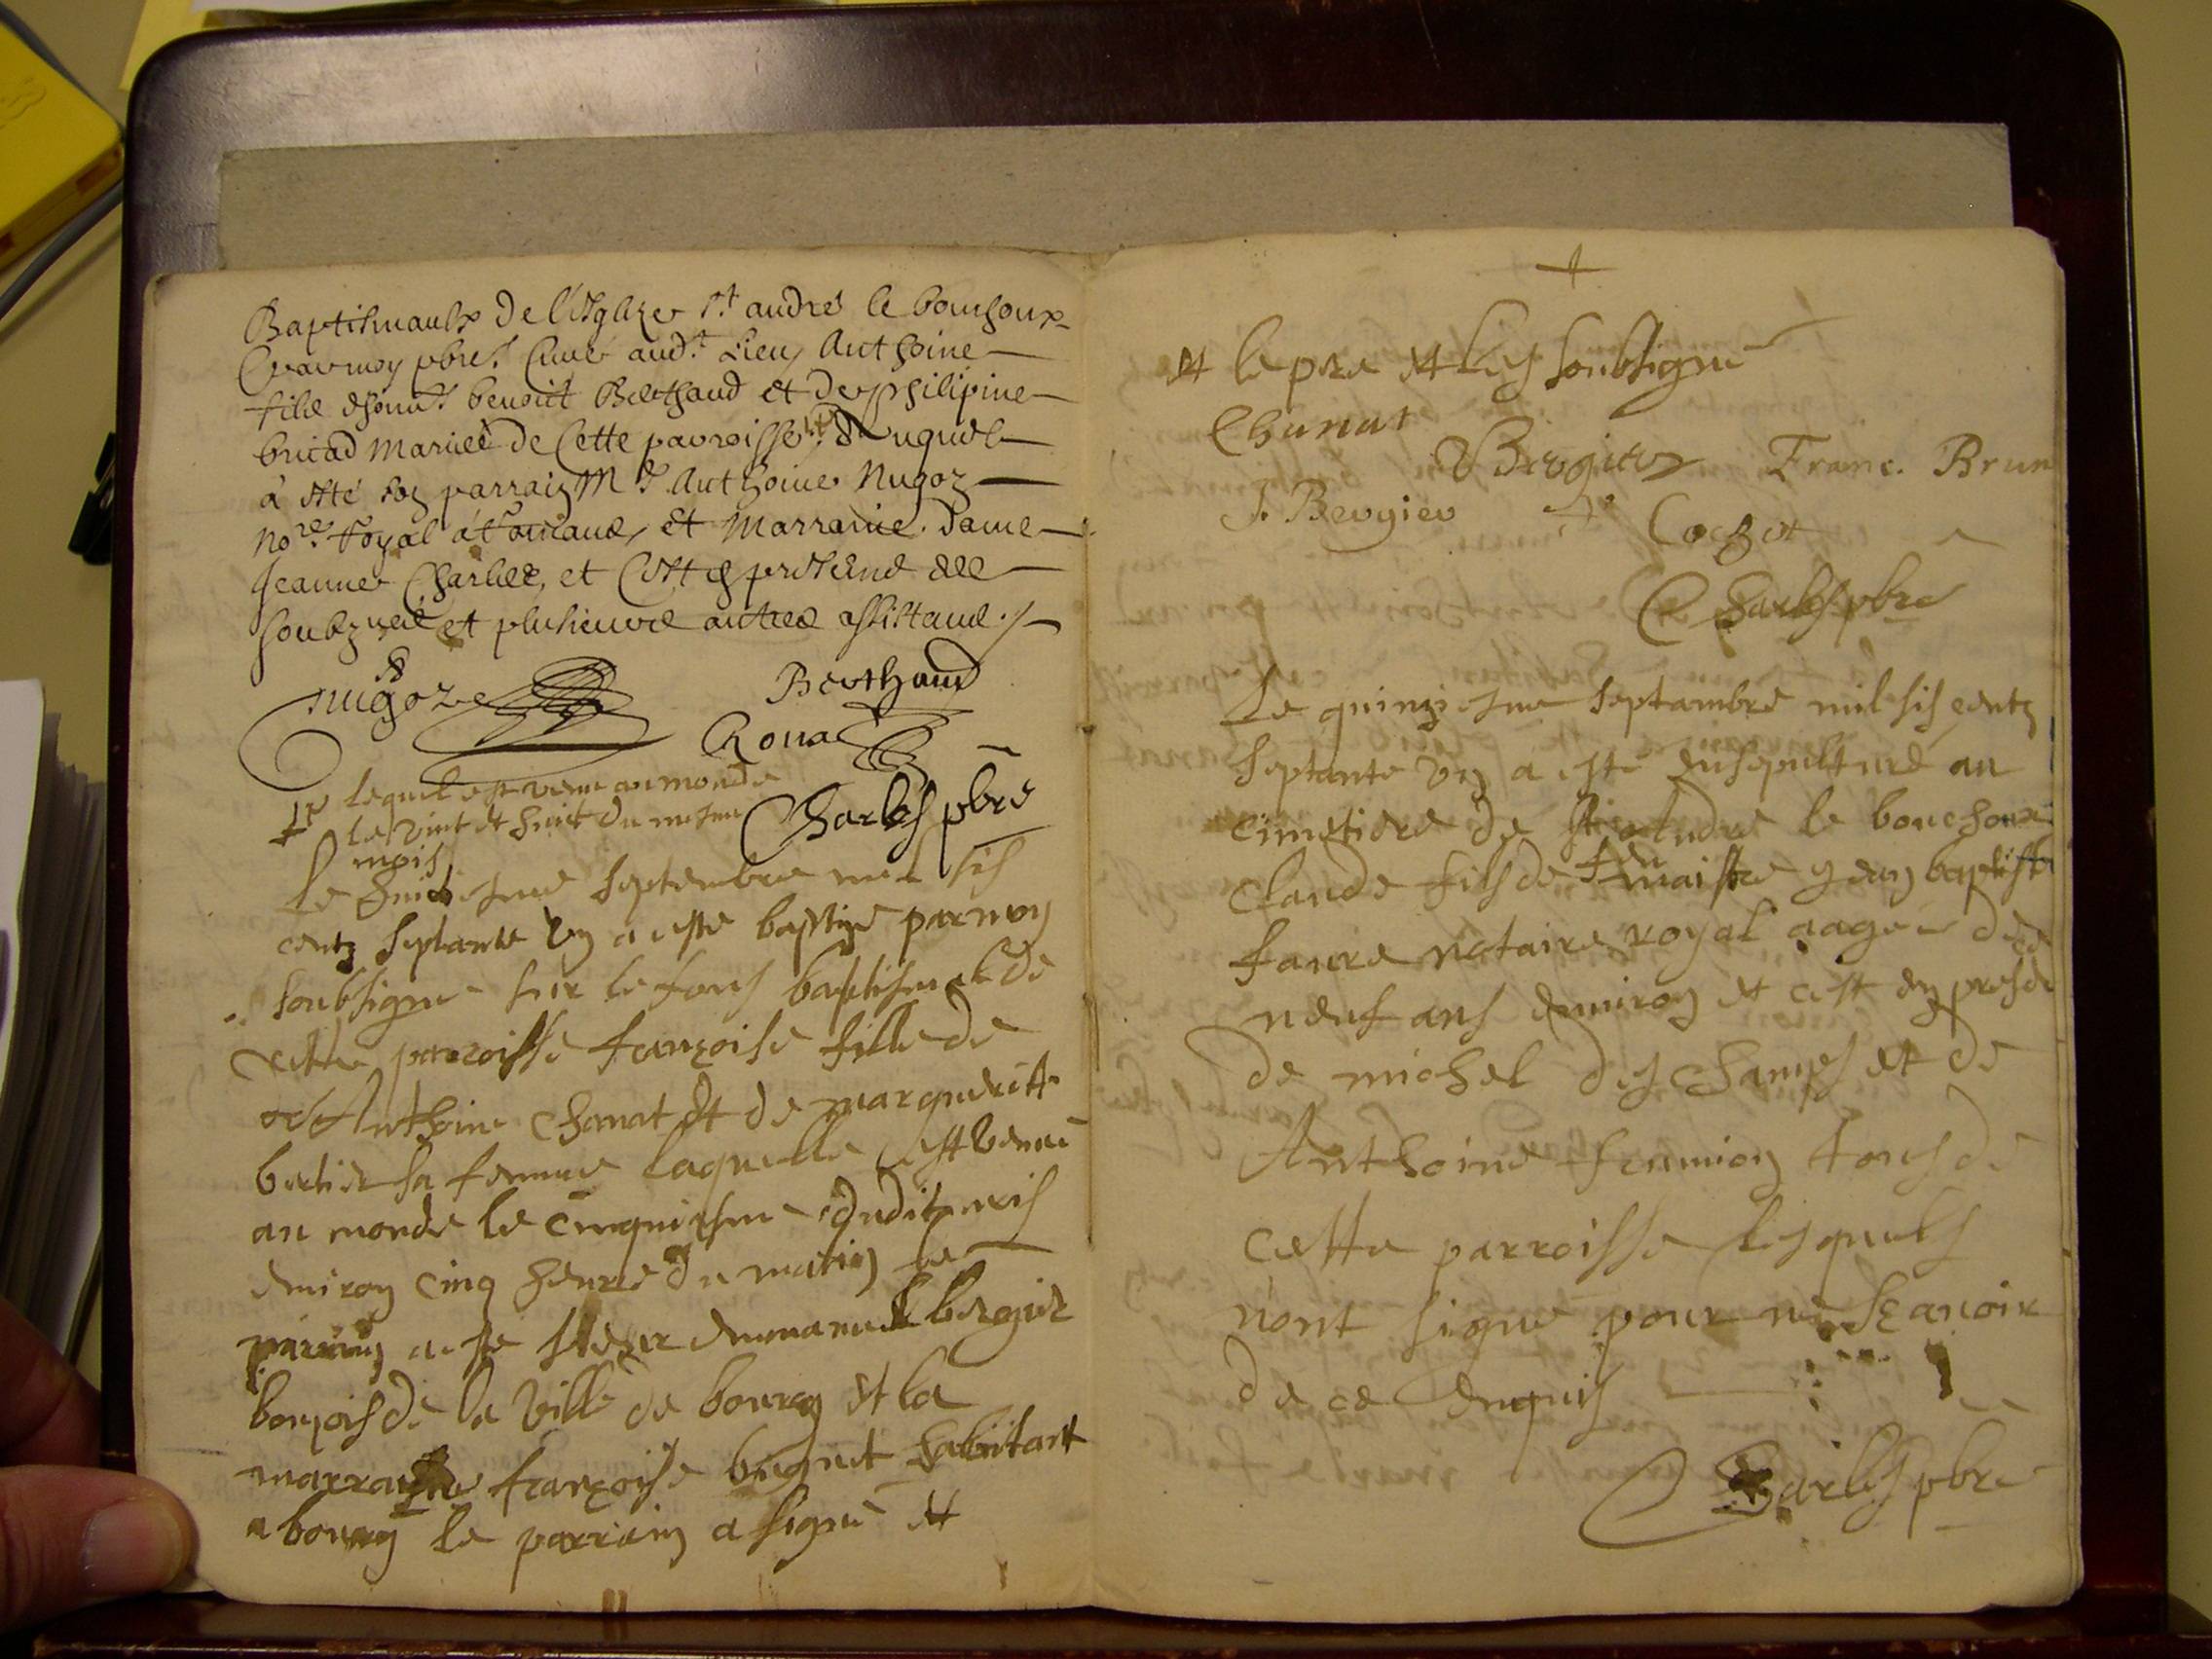 Baptismaulx de l'Esglize St andré le bouchoux
par moy pbre Curé aud.t Lieu Anthoine
filz d'honn.e benoict Berthaud et de philipine
mariez de Cette parroisse
à esté son parrain M.e Anthoine Nugoz
No.re Royal et Marraine dame
Jeanne Charlez, et Cest en presence des
soubznez et plusieurs autres assistans
nugoz
Berthaud
lequel est venu au monde
le vint et huict du mesme
mois
Charles pbre
Le huictiesme septembre mil six
centz septante un a esté baptizé par moy
soubsigne sur le fons baptismal de
cette parroisse françoise fille de
Anthoine Chanat et de marguerite
sa femme laquelle est venue
au monde le cinquiesme dudit mois
enuiron cinq heures du matin le
parrain a esté sieur emmanuel bergier
bourjois de la ville de bourg et la
marraine françoise habitant
a bourg le parrain a signé et
et le pere et les soubsigné
Chanat
Bergier Franc. Brun
J. Bergier
Cochet
Charles pbre
Le quinziesme septambre mil sis centz
septante un a esté ensepulturé au
cimetiere de St Andre le bouchoux
claude fils de feu maistre jean baptiste
faure notaire royal aagé de
neuf ans enuiron et c'est en presence
de michel des champs et de
Anthoine tous de
cette parroisse lesquels
n'ont signé pour ne sçauoir
de ce enquis
Charles pbre